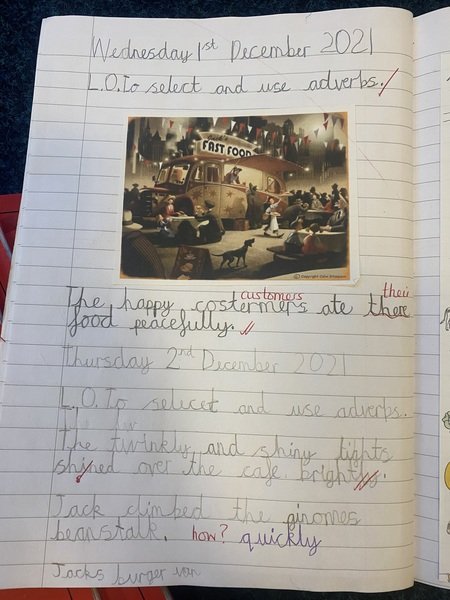 Wednesday 1st December 2021
L.O.To select and use adverbs.
FAST FOOD
© Copyright Colin Thompson
customers their
The happy costermers ate there
food peacefully.
Thursday 2nd December 2021
L.O.To selecet and use adverbs.
The twinkly and shiny lights
shined over the cafe brightly.
Jack climbed the ginomes
beanstalk. how? quickly
Jacks burger van